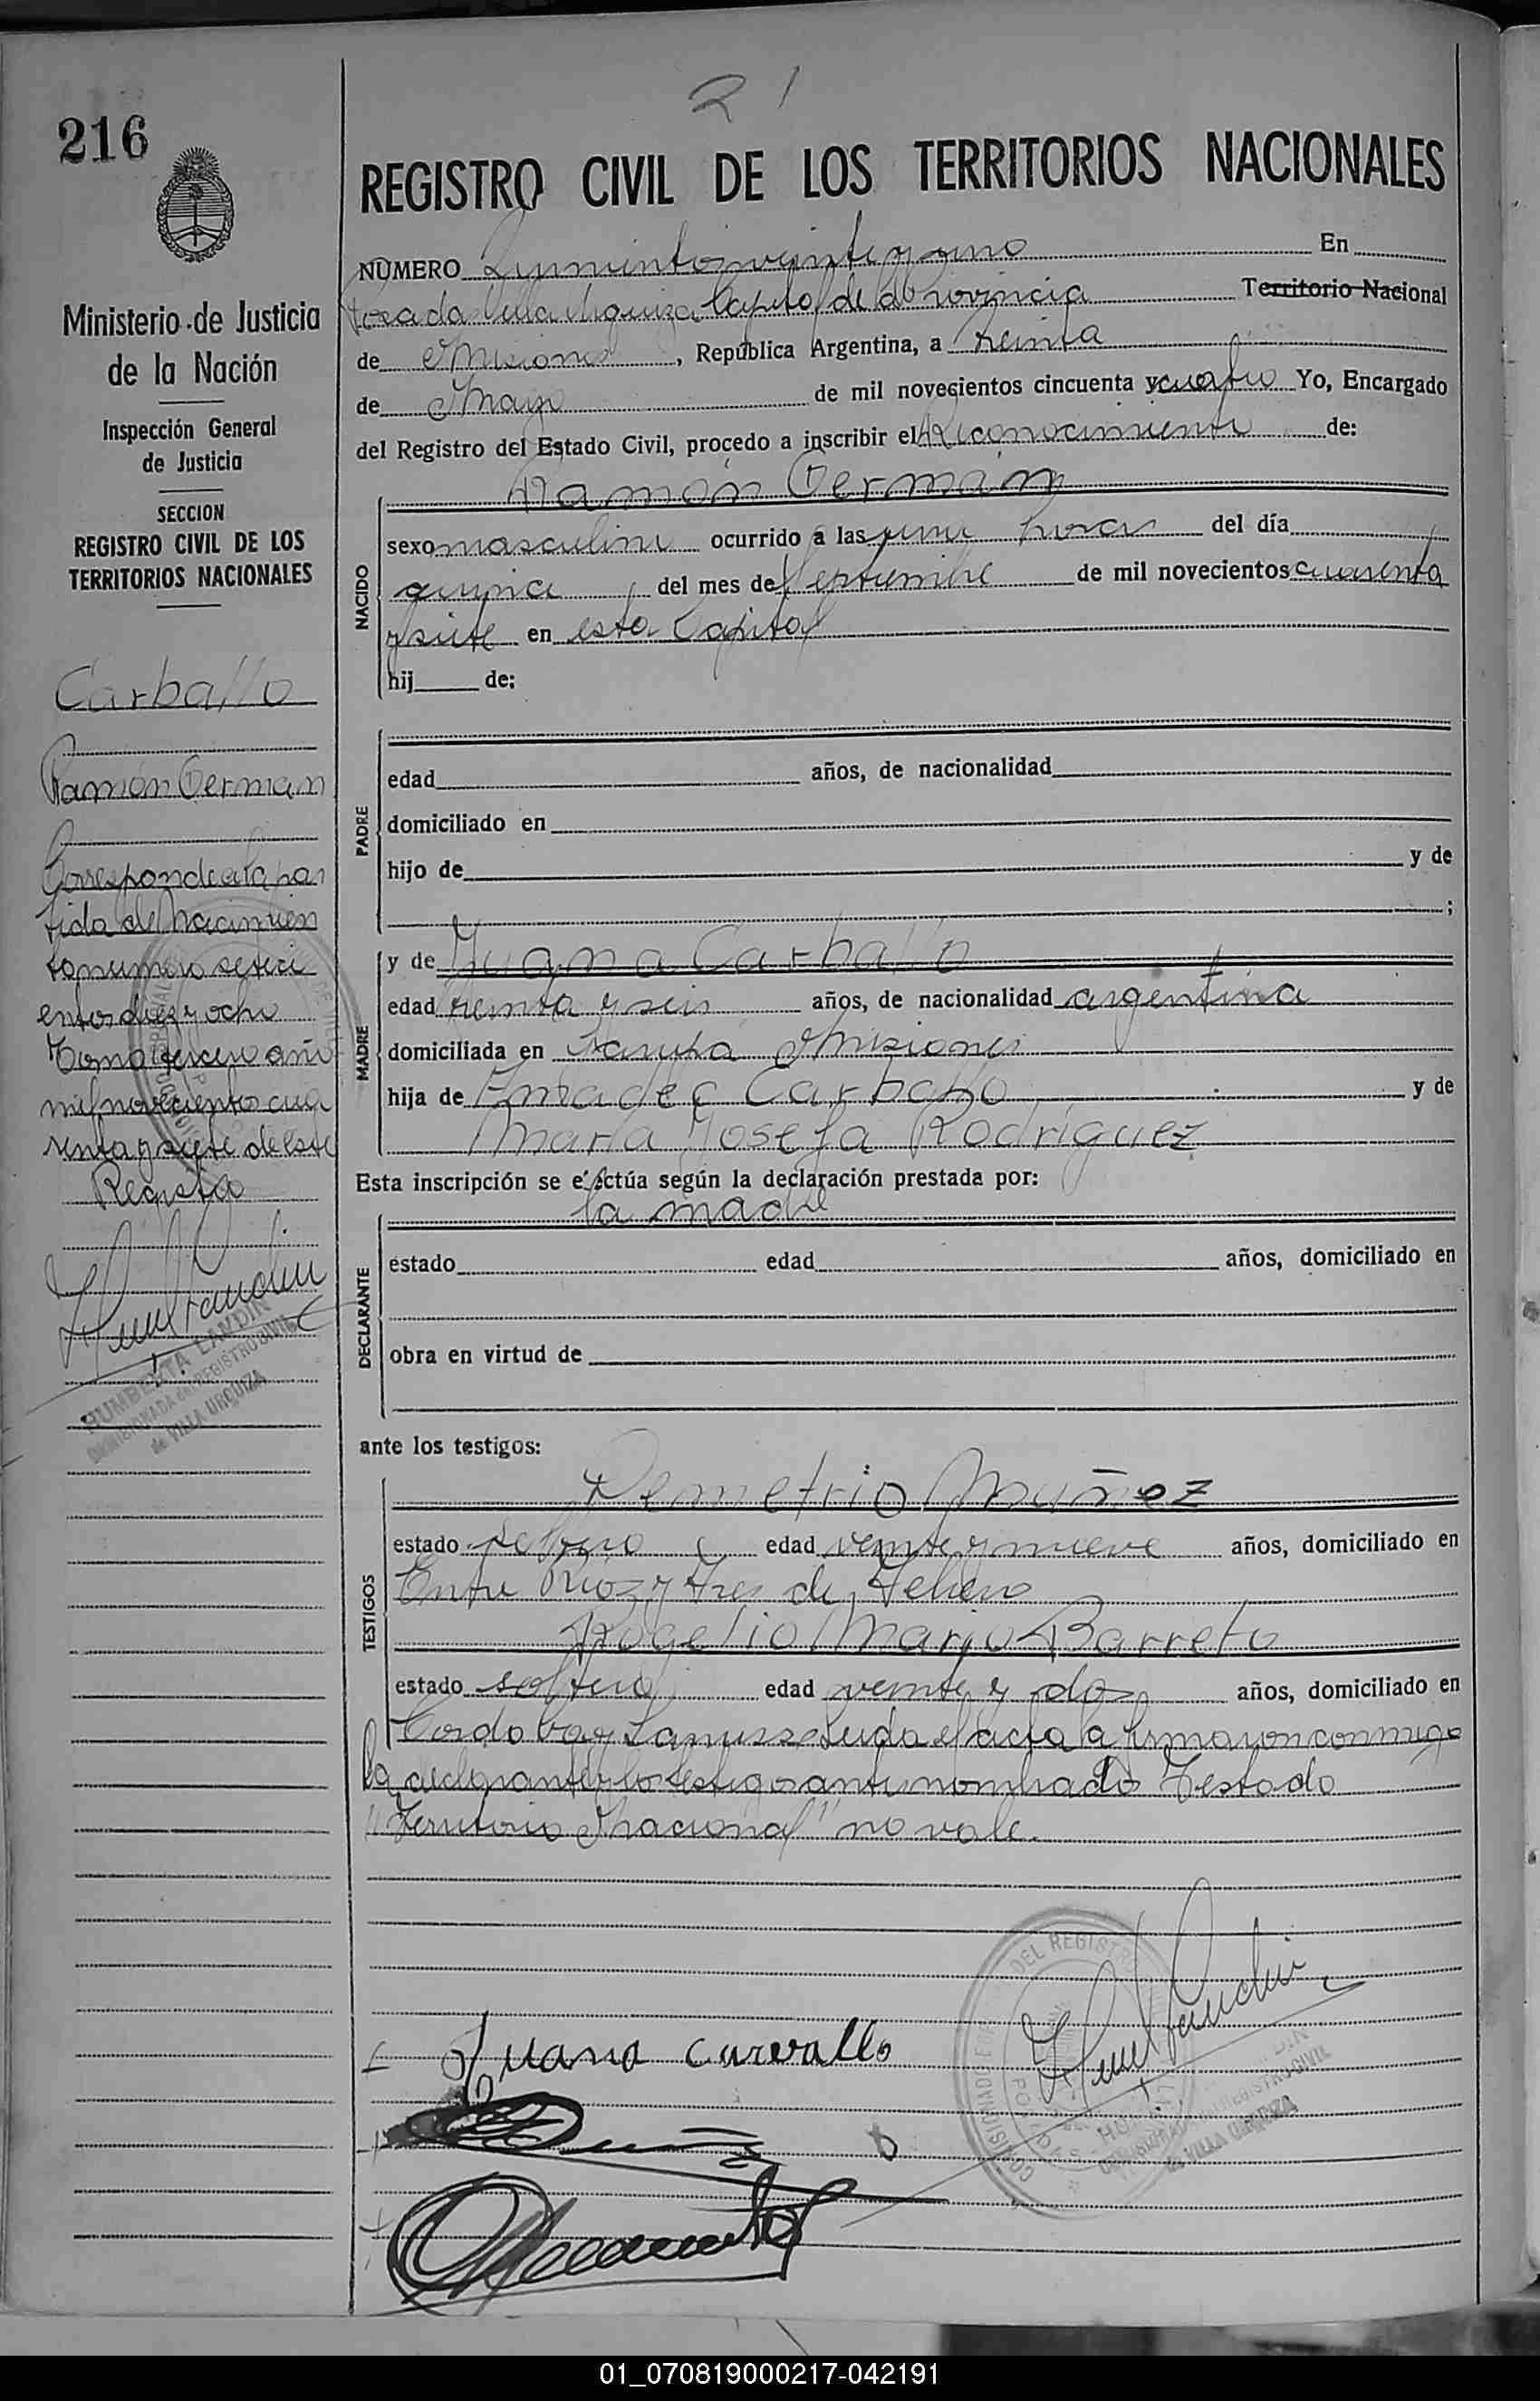 21
216
REGISTRO CIVIL DE LOS TERRITORIOS NACIONALES
Ministerio de Justicia
de la Nación
Inspección General
de Justicia
SECCION
REGISTRO CIVIL DE LOS
TERRITORIOS NACIONALES
Carballo
Ramón German
Corresponde a la par
tida de nacimien
to numero seteci
entos diez y ocho
Tomo tercero año
mil novecientos cua
renta y siete de este
Registro
HUMBERTA LANDIN
COMISIONADA del REGISTRO CIVIL
de VILLA URQUIZA
NUMERO Quinientos veinte y uno En
Posadas Villa Urquiza Capital de la Provincia Territorio Nacional
de Misiones, República Argentina, a treinta
de Mayo de mil novecientos cincuenta y cuatro Yo, Encargado
del Registro del Estado Civil, procedo a inscribir el Reconocimiento de:
Ramón German
NACIDO
sexo masculino ocurrido a las una horas del día
quince del mes de Septiembre de mil novecientos cuarenta
y siete en esta Capital
hij de:
PADRE
edad años, de nacionalidad
domiciliado en
hijo de y de
;
MADRE
y de Juana Carballo
edad treinta y seis años, de nacionalidad argentina
domiciliada en Garupá Misiones
hija de Carballo y de
María Josefa Rodríguez
Esta inscripción se efectúa según la declaración prestada por:
la madre
DECLARANTE
estado edad años, domiciliado en
obra en virtud de
ante los testigos:
TESTIGOS
Demetrio Muñoz
estado soltero edad veinte y nueve años, domiciliado en
Entre Rios y tres de Febrero
Rogelio Mario Barreto
estado soltero edad veinte y dos años, domiciliado en
Cordoba y Lanusse Leida el acta la firmaron conmigo
la declarante y los testigos antes nombrados Testado
"Territorio Nacional" no vale.
Juana carvallo
DEL REGISTRO
POSADAS
REGISTRO CIVIL
de VILLA URQUIZA
01_070819000217-042191